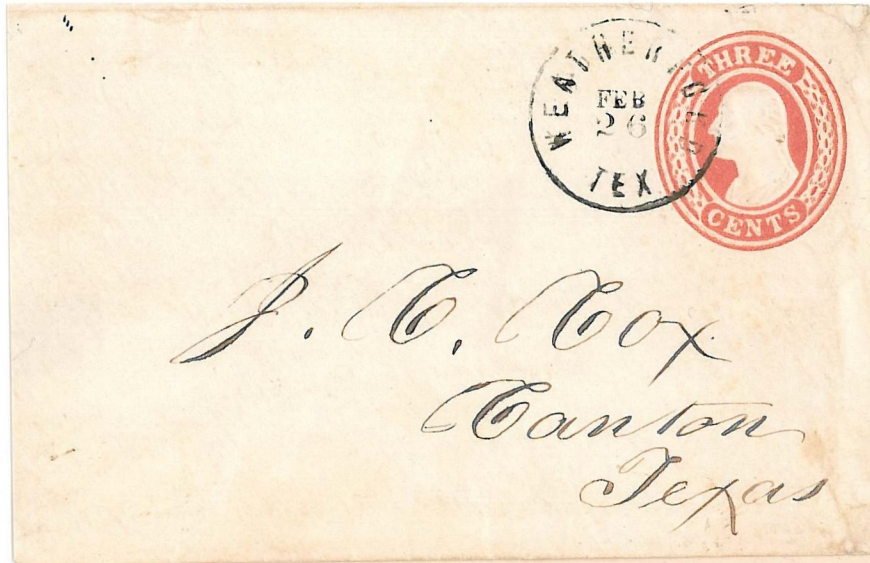 WEATHERFORD
FEB
26
TEX
THREE
CENTS
J. C. Cox
Canton
Texas